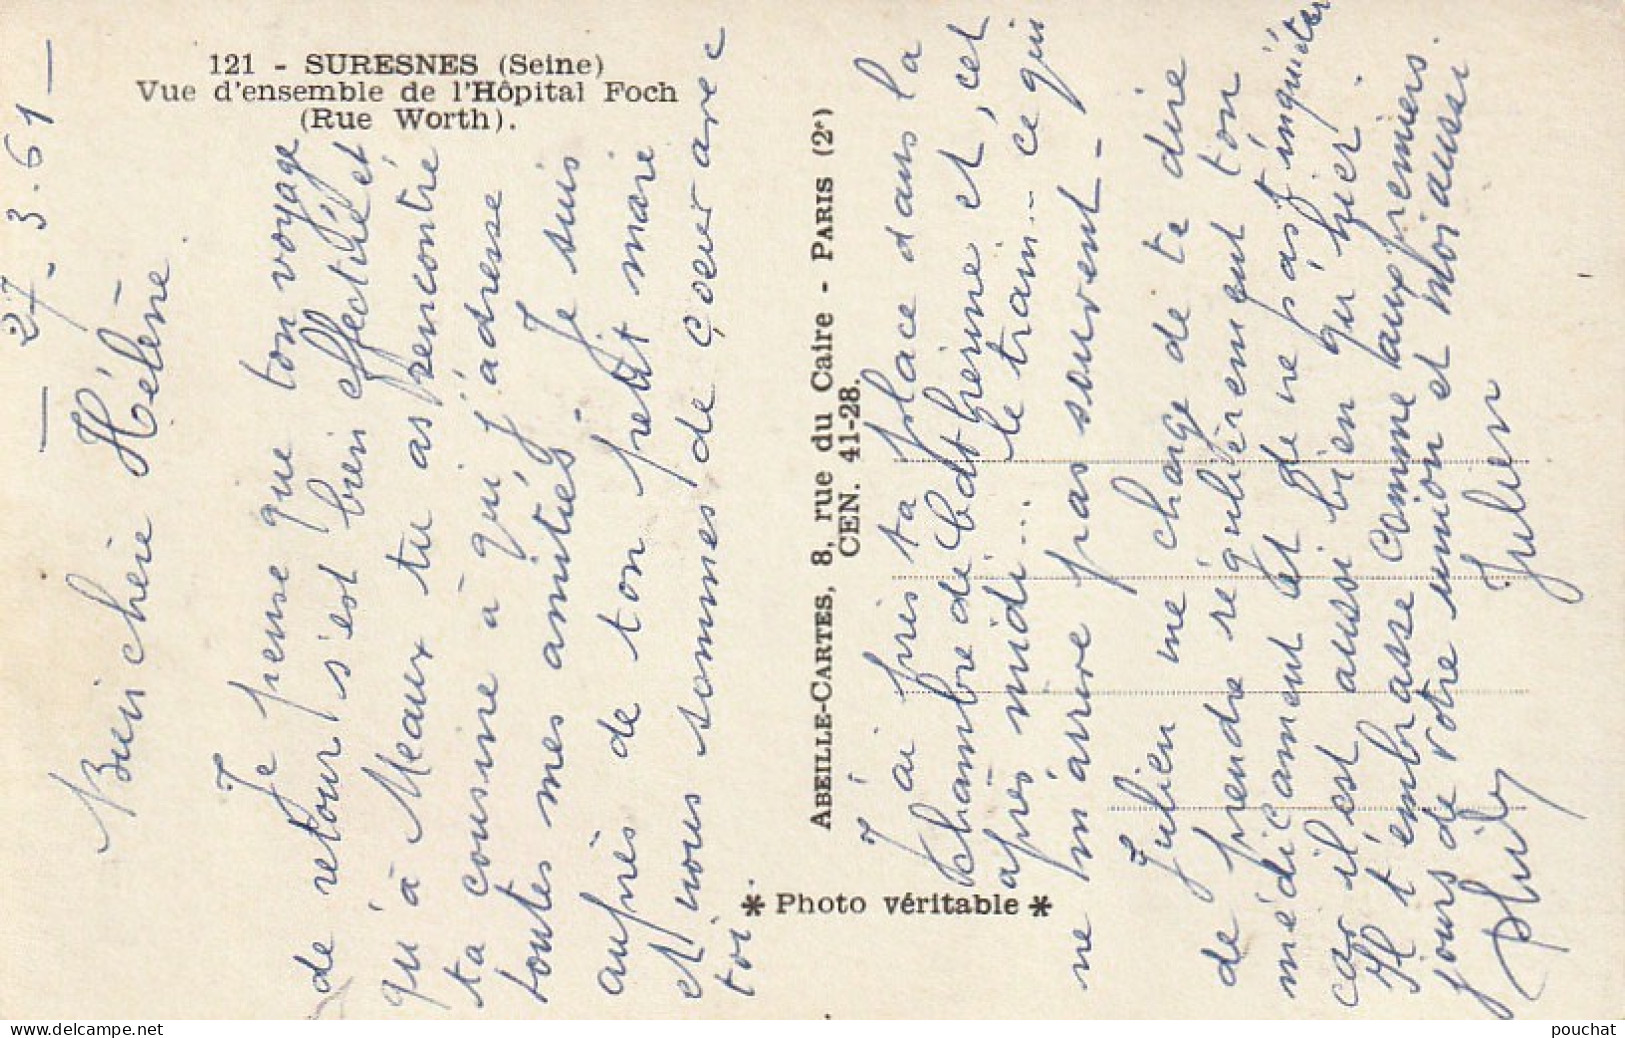 121 - SURESNES (Seine)
Vue d'ensemble de l'Hôpital Foch
(Rue Worth).
— 27.3.61 —
Bien chère Hélène
Je pense que ton voyage
de retour s'est bien effectué et
qu'à Meaux tu as rencontré
ta cousine à qui j'adresse
toutes mes amitiés. Je suis
auprès de ton petit mari
et nous sommes de coeur avec
toi.
ABEILLE-CARTES, 8, rue du Caire - PARIS (2e)
CEN. 41-28.
* Photo véritable *
J'ai pris ta place dans la
chambre de Cathérine et, cet
après midi... le train... ce qui
ne m'arrive pas souvent -
Julien me charge de te dire
de prendre régulièrement ton
médicament et de ne pas t'inquiéter
car il est aussi bien qu'hier.
Il t'embrasse comme aux premiers
jours de votre union et moi aussi
Julien
delcampe.net
pouchat